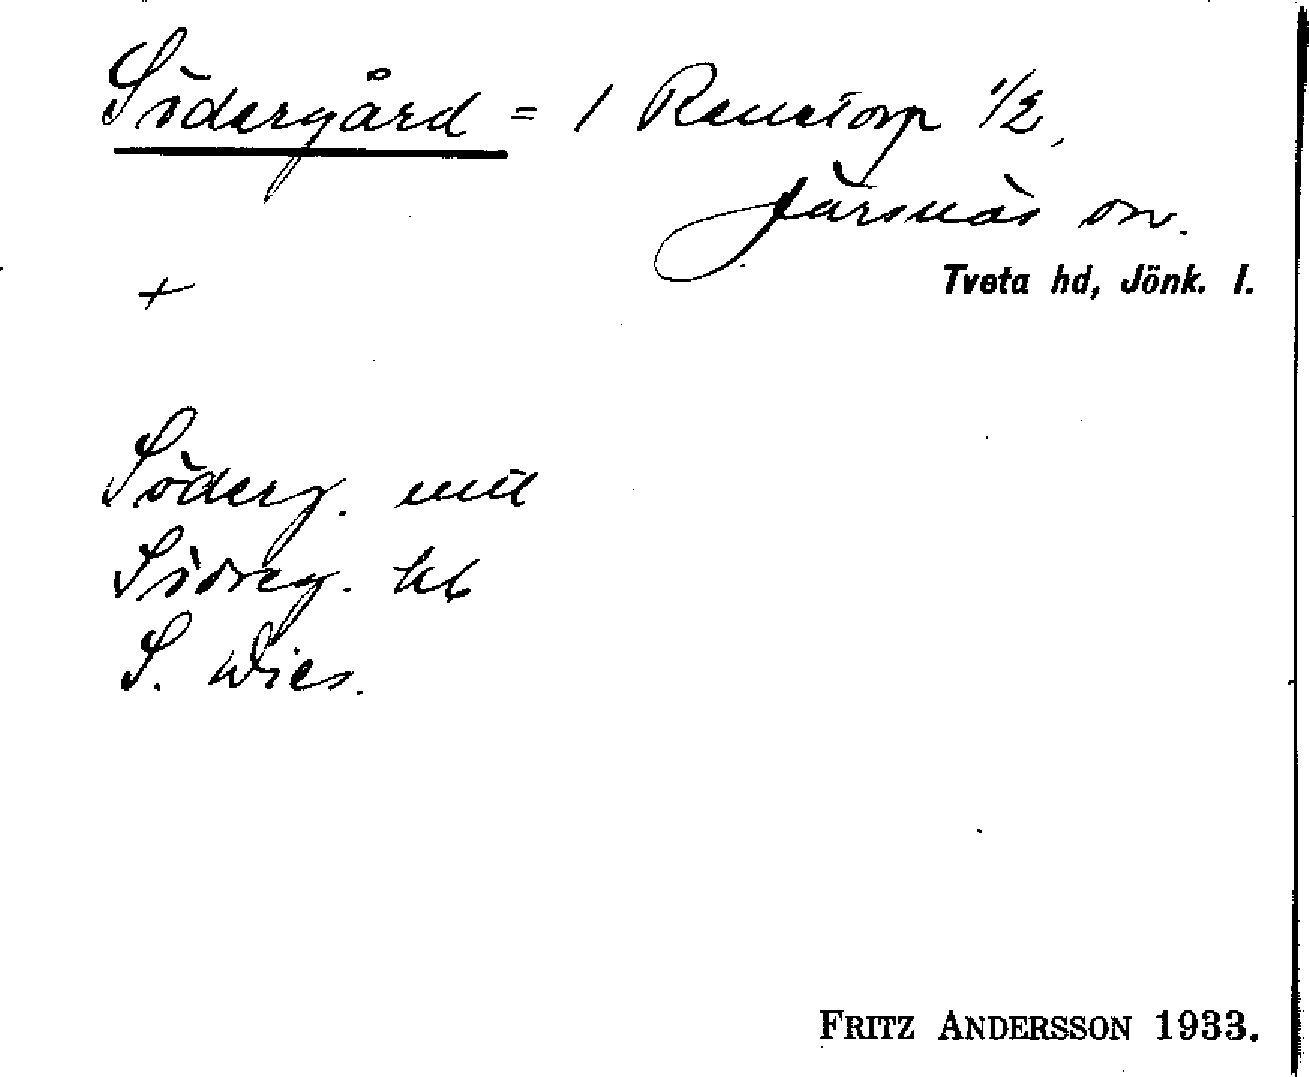 Södergård = 1 Renstorp 1/2,
Järsnäs sn.
Tveta hd, Jönk. l.
+
Söderg. mtl
Södreg. hb
S. Wies.
FRITZ ANDERSSON 1933.